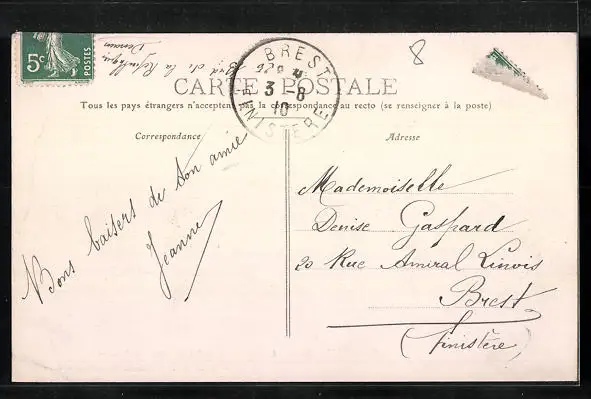 5c
POSTES
B^rd de la République
BREST
3 -8
10
FINISTERE
8
CARTE POSTALE
Tous les pays étrangers n'acceptent pas la correspondance au recto (se renseigner à la poste)
Correspondance
Adresse
Bons baisers de ton amie
Jeanne
Mademoiselle
Denise Gaspard
20 Rue Amiral Linois
Brest
(Finistère)